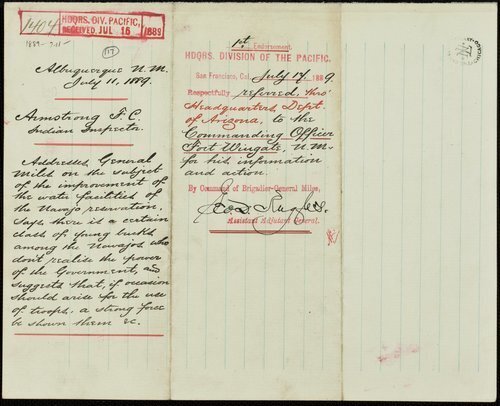 1404
HDQRS. DIV. PACIFIC,
RECEIVED JUL 16 1889
1889
117
Albuquerque N. M.
July 11, 1889.
Armstrong F. C.
Indian Inspector.
Addresses General
Miles on the subject
of the improvement of
the water facilities of
the Navajo reservation.
Says there is a certain
class of young bucks
among the Navajos who
don't realize the power
of the Government, and
suggests that, if occasion
should arise for the use
of troops, a strong force
be shown them &c.
1st Endorsement.
HDQRS. DIVISION OF THE PACIFIC.
San Francisco, Cal. July 17, 1889.
Respectfully referred, thro'
Headquarters, Dept.
of Arizona, to the
Commanding Officer
Fort Wingate, N. M.
for his information
and action.
By Command of Brigadier-General Miles,
Assistant Adjutant General.